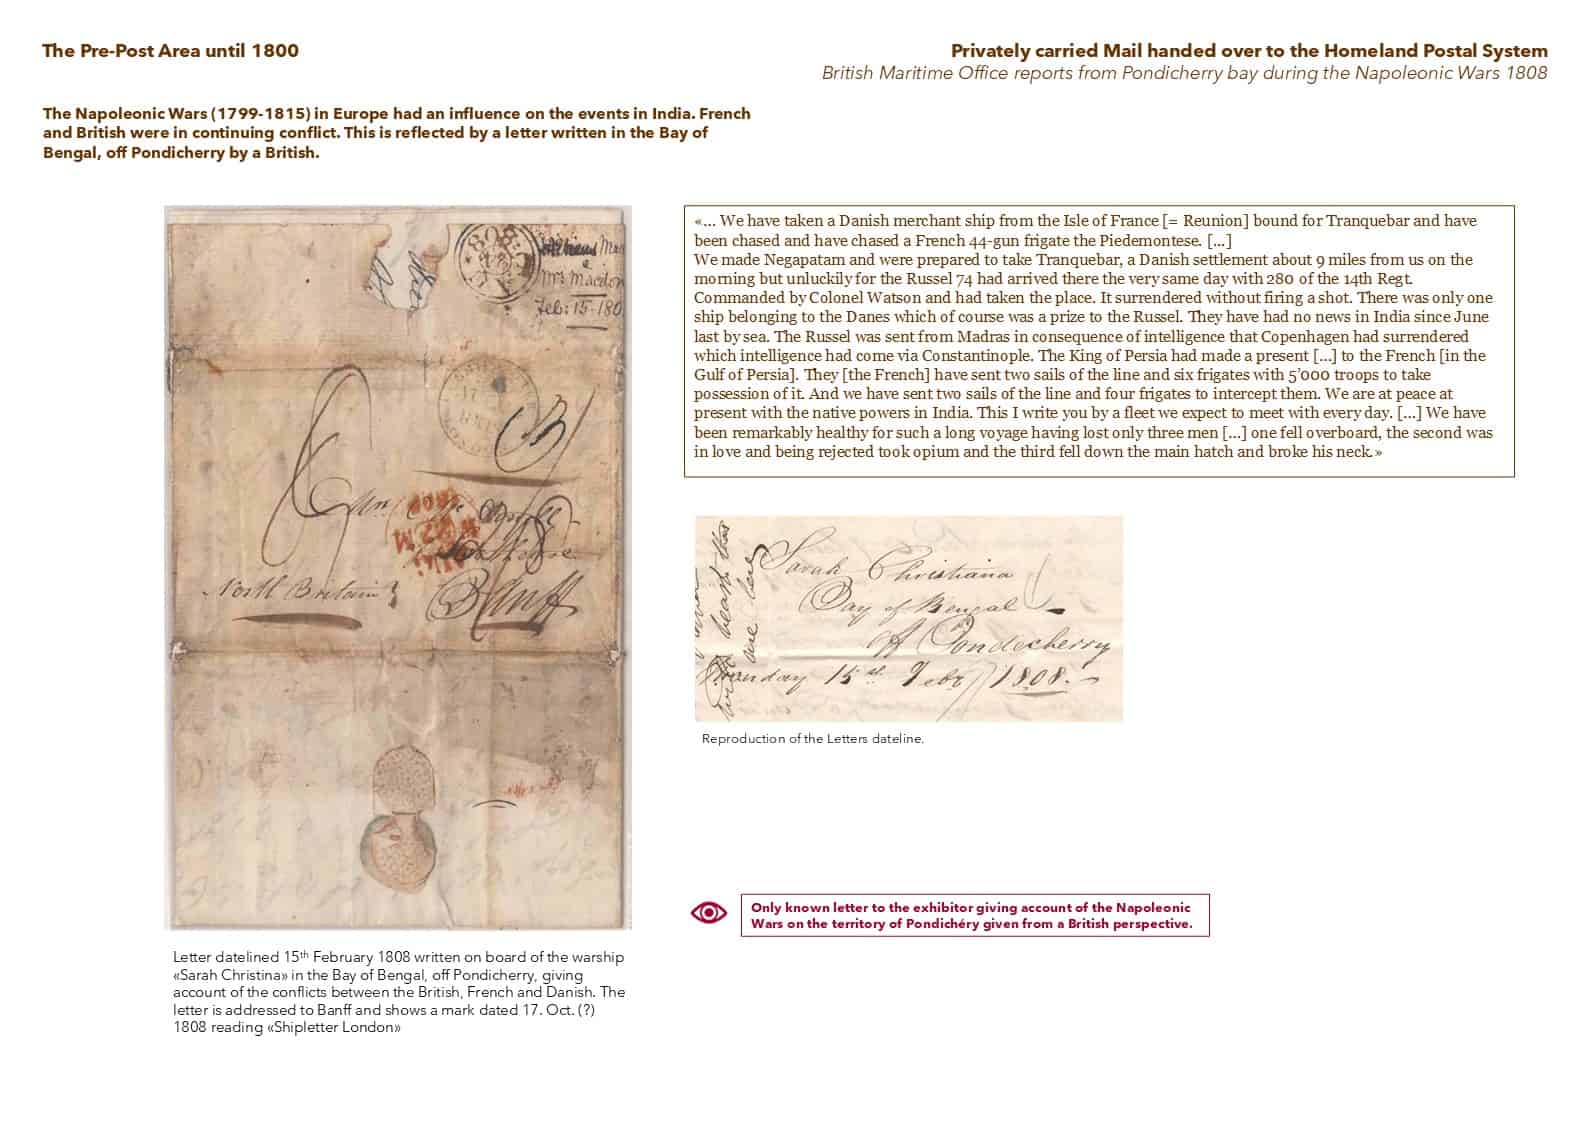 The Pre-Post Area until 1800
Privately carried Mail handed over to the Homeland Postal System
British Maritime Office reports from Pondicherry bay during the Napoleonic Wars 1808
The Napoleonic Wars (1799-1815) in Europe had an influence on the events in India. French
and British were in continuing conflict. This is reflected by a letter written in the Bay of
Bengal, off Pondicherry by a British.
Mrs Macdon
Feb: 15-180
North Britain
Banff
Letter datelined 15th February 1808 written on board of the warship
«Sarah Christina» in the Bay of Bengal, off Pondicherry, giving
account of the conflicts between the British, French and Danish. The
letter is addressed to Banff and shows a mark dated 17. Oct. (?)
1808 reading «Shipletter London»
«... We have taken a Danish merchant ship from the Isle of France [= Reunion] bound for Tranquebar and have
been chased and have chased a French 44-gun frigate the Piedemontese. [...]
We made Negapatam and were prepared to take Tranquebar, a Danish settlement about 9 miles from us on the
morning but unluckily for the Russel 74 had arrived there the very same day with 280 of the 14th Regt.
Commanded by Colonel Watson and had taken the place. It surrendered without firing a shot. There was only one
ship belonging to the Danes which of course was a prize to the Russel. They have had no news in India since June
last by sea. The Russel was sent from Madras in consequence of intelligence that Copenhagen had surrendered
which intelligence had come via Constantinople. The King of Persia had made a present [...] to the French [in the
Gulf of Persia]. They [the French] have sent two sails of the line and six frigates with 5'000 troops to take
possession of it. And we have sent two sails of the line and four frigates to intercept them. We are at peace at
present with the native powers in India. This I write you by a fleet we expect to meet with every day. [...] We have
been remarkably healthy for such a long voyage having lost only three men [...] one fell overboard, the second was
in love and being rejected took opium and the third fell down the main hatch and broke his neck.»
Sarah Christiana
Bay of Bengal
off Pondecherry
Monday 15th Febry 1808.
Reproduction of the Letters dateline.
Only known letter to the exhibitor giving account of the Napoleonic
Wars on the territory of Pondichéry given from a British perspective.